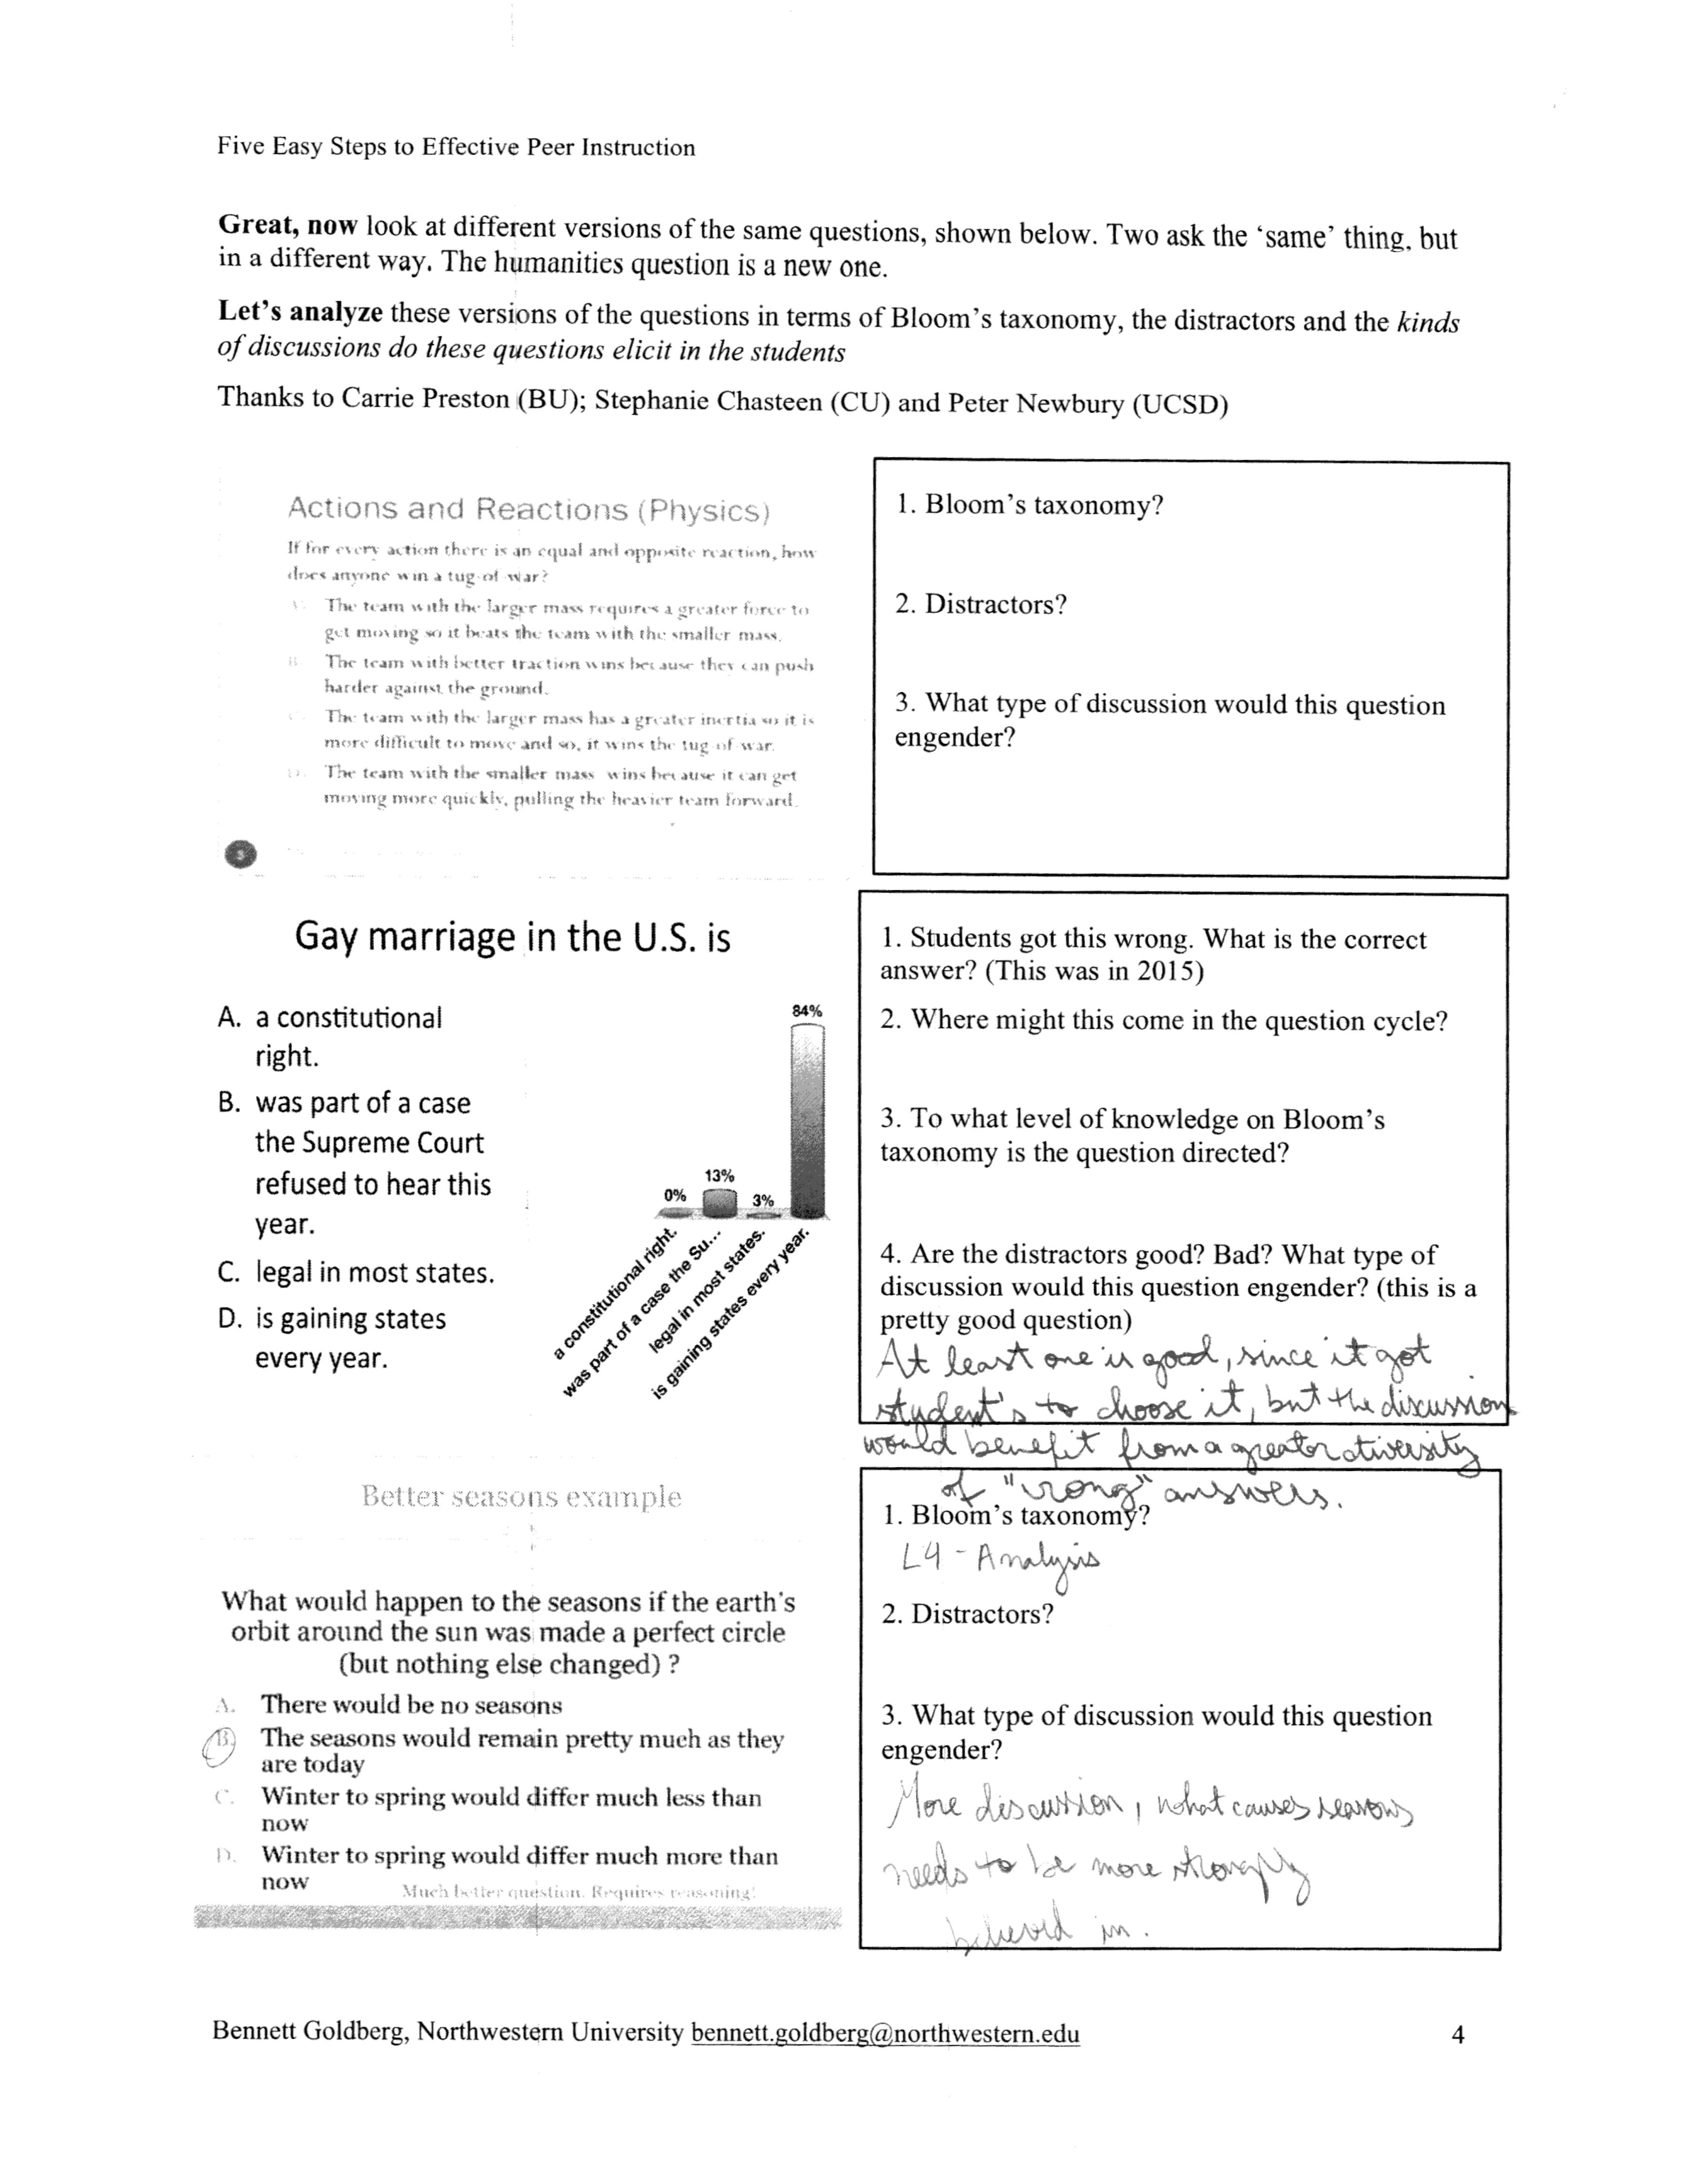 Five Easy Steps to Effective Peer Instruction
Great, now look at different versions of the same questions, shown below. Two ask the ‘same’ thing, but
in a different way. The humanities question is a new one.
Let’s analyze these versions of the questions in terms of Bloom’s taxonomy, the distractors and the kinds
of discussions do these questions elicit in the students
Thanks to Carrie Preston (BU); Stephanie Chasteen (CU) and Peter Newbury (UCSD)
Actions and Reactions (Physics)
If for every action there is an equal and opposite reaction, how
does anyone win a tug-of-war?
The team with the larger mass requires a greater force to
get moving so it beats the team with the smaller mass.
B. The team with better traction wins because they can push
harder against the ground.
C. The team with the larger mass has a greater inertia so it is
more difficult to move and so, it wins the tug-of-war.
D. The team with the smaller mass wins because it can get
moving more quickly, pulling the heavier team forward.
3
1. Bloom’s taxonomy?
2. Distractors?
3. What type of discussion would this question
engender?
Gay marriage in the U.S. is
A. a constitutional
right.
B. was part of a case
the Supreme Court
refused to hear this
year.
C. legal in most states.
D. is gaining states
every year.
0%
13%
3%
84%
a constitutional right.
was part of a case the Su...
legal in most states.
is gaining states every year.
1. Students got this wrong. What is the correct
answer? (This was in 2015)
2. Where might this come in the question cycle?
3. To what level of knowledge on Bloom’s
taxonomy is the question directed?
4. Are the distractors good? Bad? What type of
discussion would this question engender? (this is a
pretty good question)
At least one is good, since it got
student's to choose it, but the discussion
would benefit from a greater diversity
of "wrong" answers.
Better seasons example
What would happen to the seasons if the earth's
orbit around the sun was made a perfect circle
(but nothing else changed) ?
A. There would be no seasons
B. The seasons would remain pretty much as they
are today
C. Winter to spring would differ much less than
now
D. Winter to spring would differ much more than
now
Much better question. Requires reasoning!
1. Bloom’s taxonomy?
L4 - Analysis
2. Distractors?
3. What type of discussion would this question
engender?
More discussion, what causes seasons
needs to be more strongly
believed in.
Bennett Goldberg, Northwestern University bennett.goldberg@northwestern.edu
4